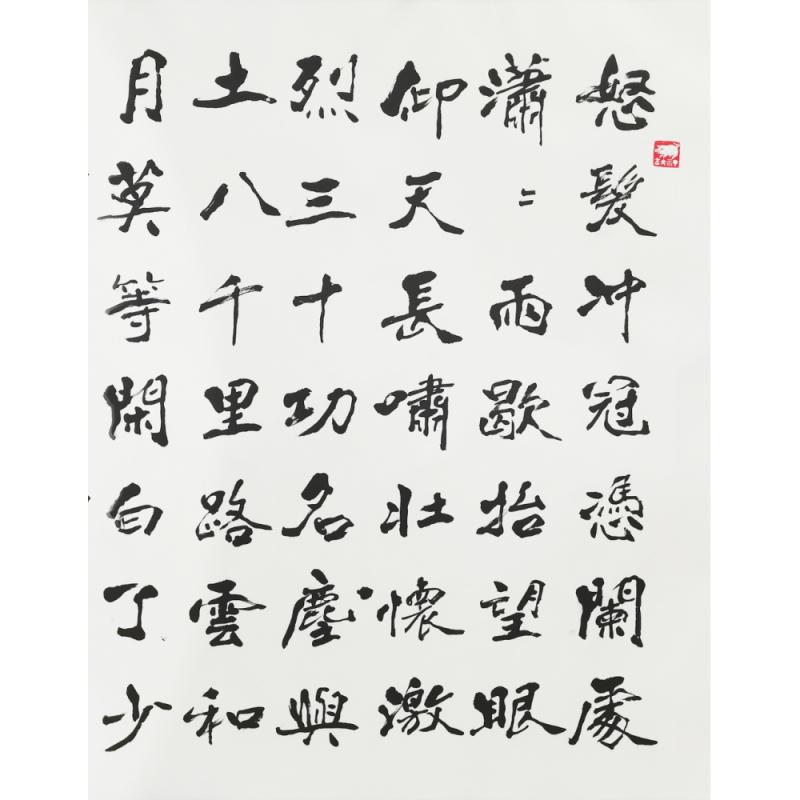 怒髮冲冠憑闌處
瀟〻雨歇抬望眼
仰天長嘯壯懷激
烈三十功名塵與
土八千里路雲和
月莫等閑白了少